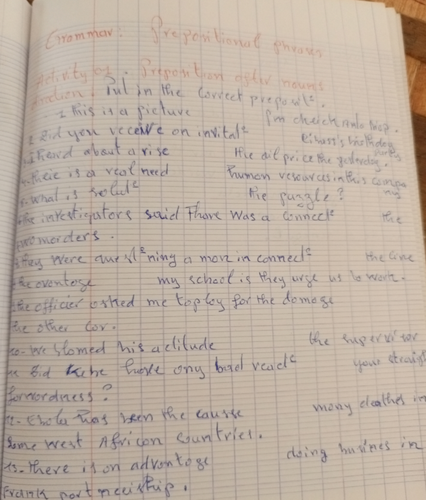 Grammar: Prepositional phrases
Activity 01: Preposition after nouns
Put in the correct preposit°.
1 this is a picture I'm check
2 Did you receive an invitat° birthday party
heard about a rise the oil price the yesterday.
4. there is a real need human resources in this company
5. what is solut° the puzzle?
the investigators said There was a connect° the
two morders.
they were quest°ning a man in connect° the
the aventage my school is they urge us to work.
the officier asked me to pay for the damage
the other car.
10- We blamed his actitude the supervisor
11 Did have any bad react° your straight
forwordness?
12- Ebola has been the causse many deathes in
Some West African Countries.
13- there is an advantage doing busines in
Frank partneiship.